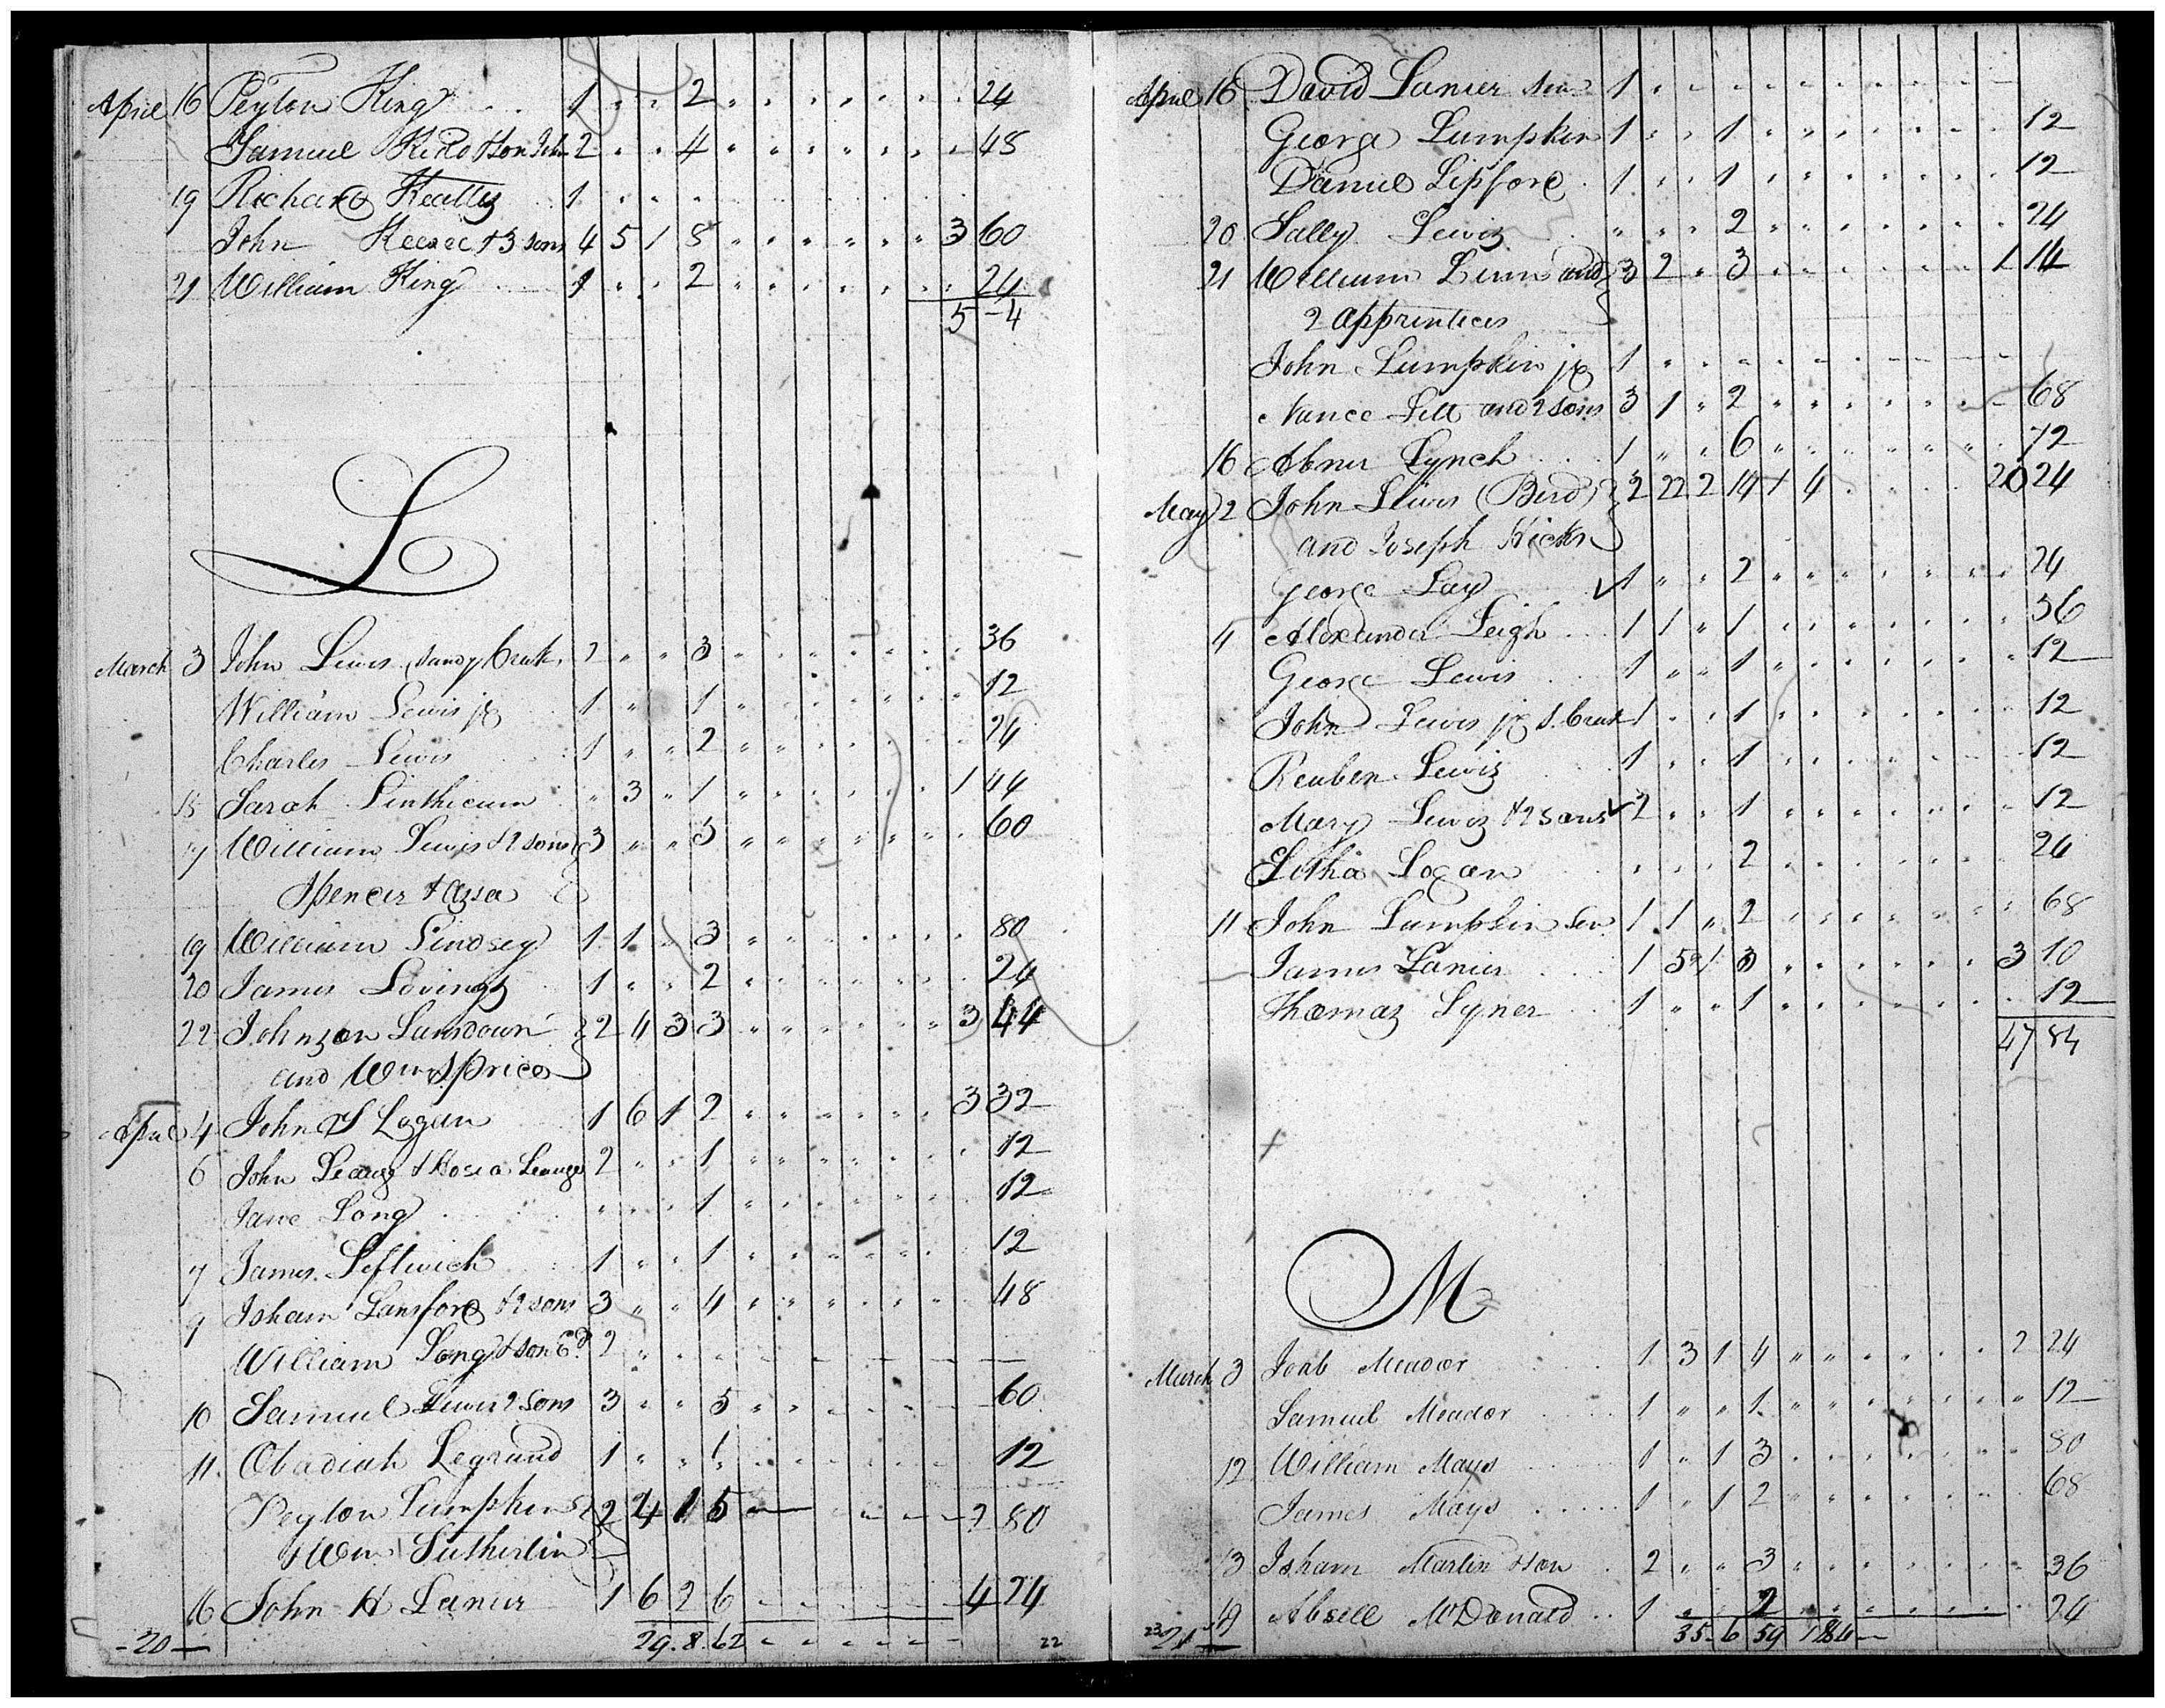 April 16 Peyton King 1 " " 2 " " " " " " " 24
Samuel Kidd & son John 2 " " 4 " " " " " " " 48
19 Richard Keatts 1 " " " " " " " " "
John Keesee & 3 sons 4 5 1 8 " " " " " " 3 60
21 William King 1 " " 2 " " " " " " " 24
5 - 4
L
March 3 John Lewis, Sandy Creek, 2 " " 3 " " " " " " " 36
William Lewis jr 1 " " 1 " " " " " " " 12
Charles Lewis 1 " " 2 " " " " " " " 24
15 Sarah Linthicum " 3 " 1 " " " " " " 1 44
17 William Lewis & 2 sons 3 " " 5 " " " " " " " 60
Spencer & Assa
19 William Lindsey 1 1 " 3 " " " " " " " 80
20 James Loving 1 " " 2 " " " " " " " 24
22 Johnson Lansdown 2 4 3 3 " " " " " " 3 44
and Wm S price
April 4 John S Logan 1 6 1 2 " " " " " " 3 32
6 John Leaug & Hosea 2 " " 1 " " " " " " " 12
Jane Long " " " 1 " " " " " " " 12
7 James Leftwich 1 " " 1 " " " " " " " 12
9 Isham Lansford & 2 sons 3 " " 4 " " " " " " " 48
William Long & son Ed. 2 " " " " " " " "
10 Samuel Lewis 2 sons 3 " " 5 " " " " " " 60
11 Obadiah Legrand 1 " " 1 " " " " " " 12
Peyton Lumpkin 2 4 1 5 — " " " " 2 80
& Wm Sutherlin
16 John H Lanier 1 6 2 6 " " " " " " 4 24
-20- 29. 8. 62 " " " " " " 22
April 16 David Lanier Sen 1 " " " " " " " " "
George Lumpkin 1 " " 1 " " " " " " " 12
Daniel Lipford 1 " " 1 " " " " " " " 12
20 Sally Lewis " " " 2 " " " " " " " 24
21 William Linn and 3 2 " 3 " " " " " " 1 14
2 apprentices
John Lumpkin jr 1 " " " " " " " " "
Vance Lell and 2 sons 3 1 " 2 " " " " " " " 68
16 Abner Lynch 1 " " 6 " " " " " " " 72
May 2 John Lewis (Bird) 2 22 2 14 1 4 " " " " 20 24
and Joseph Hicks
George Lay ✓ 1 " " 2 " " " " " " " 24
4 Alexander Leigh 1 1 " 1 " " " " " " " 56
George Lewis 1 " " 1 " " " " " " " 12
John Lewis jr S. Creek 1 " " 1 " " " " " " " 12
Reuben Lewis 1 " " 1 " " " " " " " 12
Mary Lewis & 2 sons ✓ 2 " " 1 " " " " " " " 12
Litha Logan " " " 2 " " " " " " " 24
11 John Lumpkin Sen 1 1 " 2 " " " " " " " 68
James Lanier 1 5 1 3 " " " " " " 3 10
Thomas Lyner 1 " " 1 " " " " " " " 12
47 84
M
March 3 Joab Meador 1 3 1 4 " " " " " " 2 24
Samuel Meador 1 " " 1 " " " " " " " 12
12 William Mays 1 " 1 3 " " " " " " " 80
James Mays 1 " 1 2 " " " " " " " 68
13 Isham Martin & son 2 " " 3 " " " " " " " 36
19 Absell McDonald 1 " " 2 " " " " " " " 24
23 21 35- 6 59 1 84 —